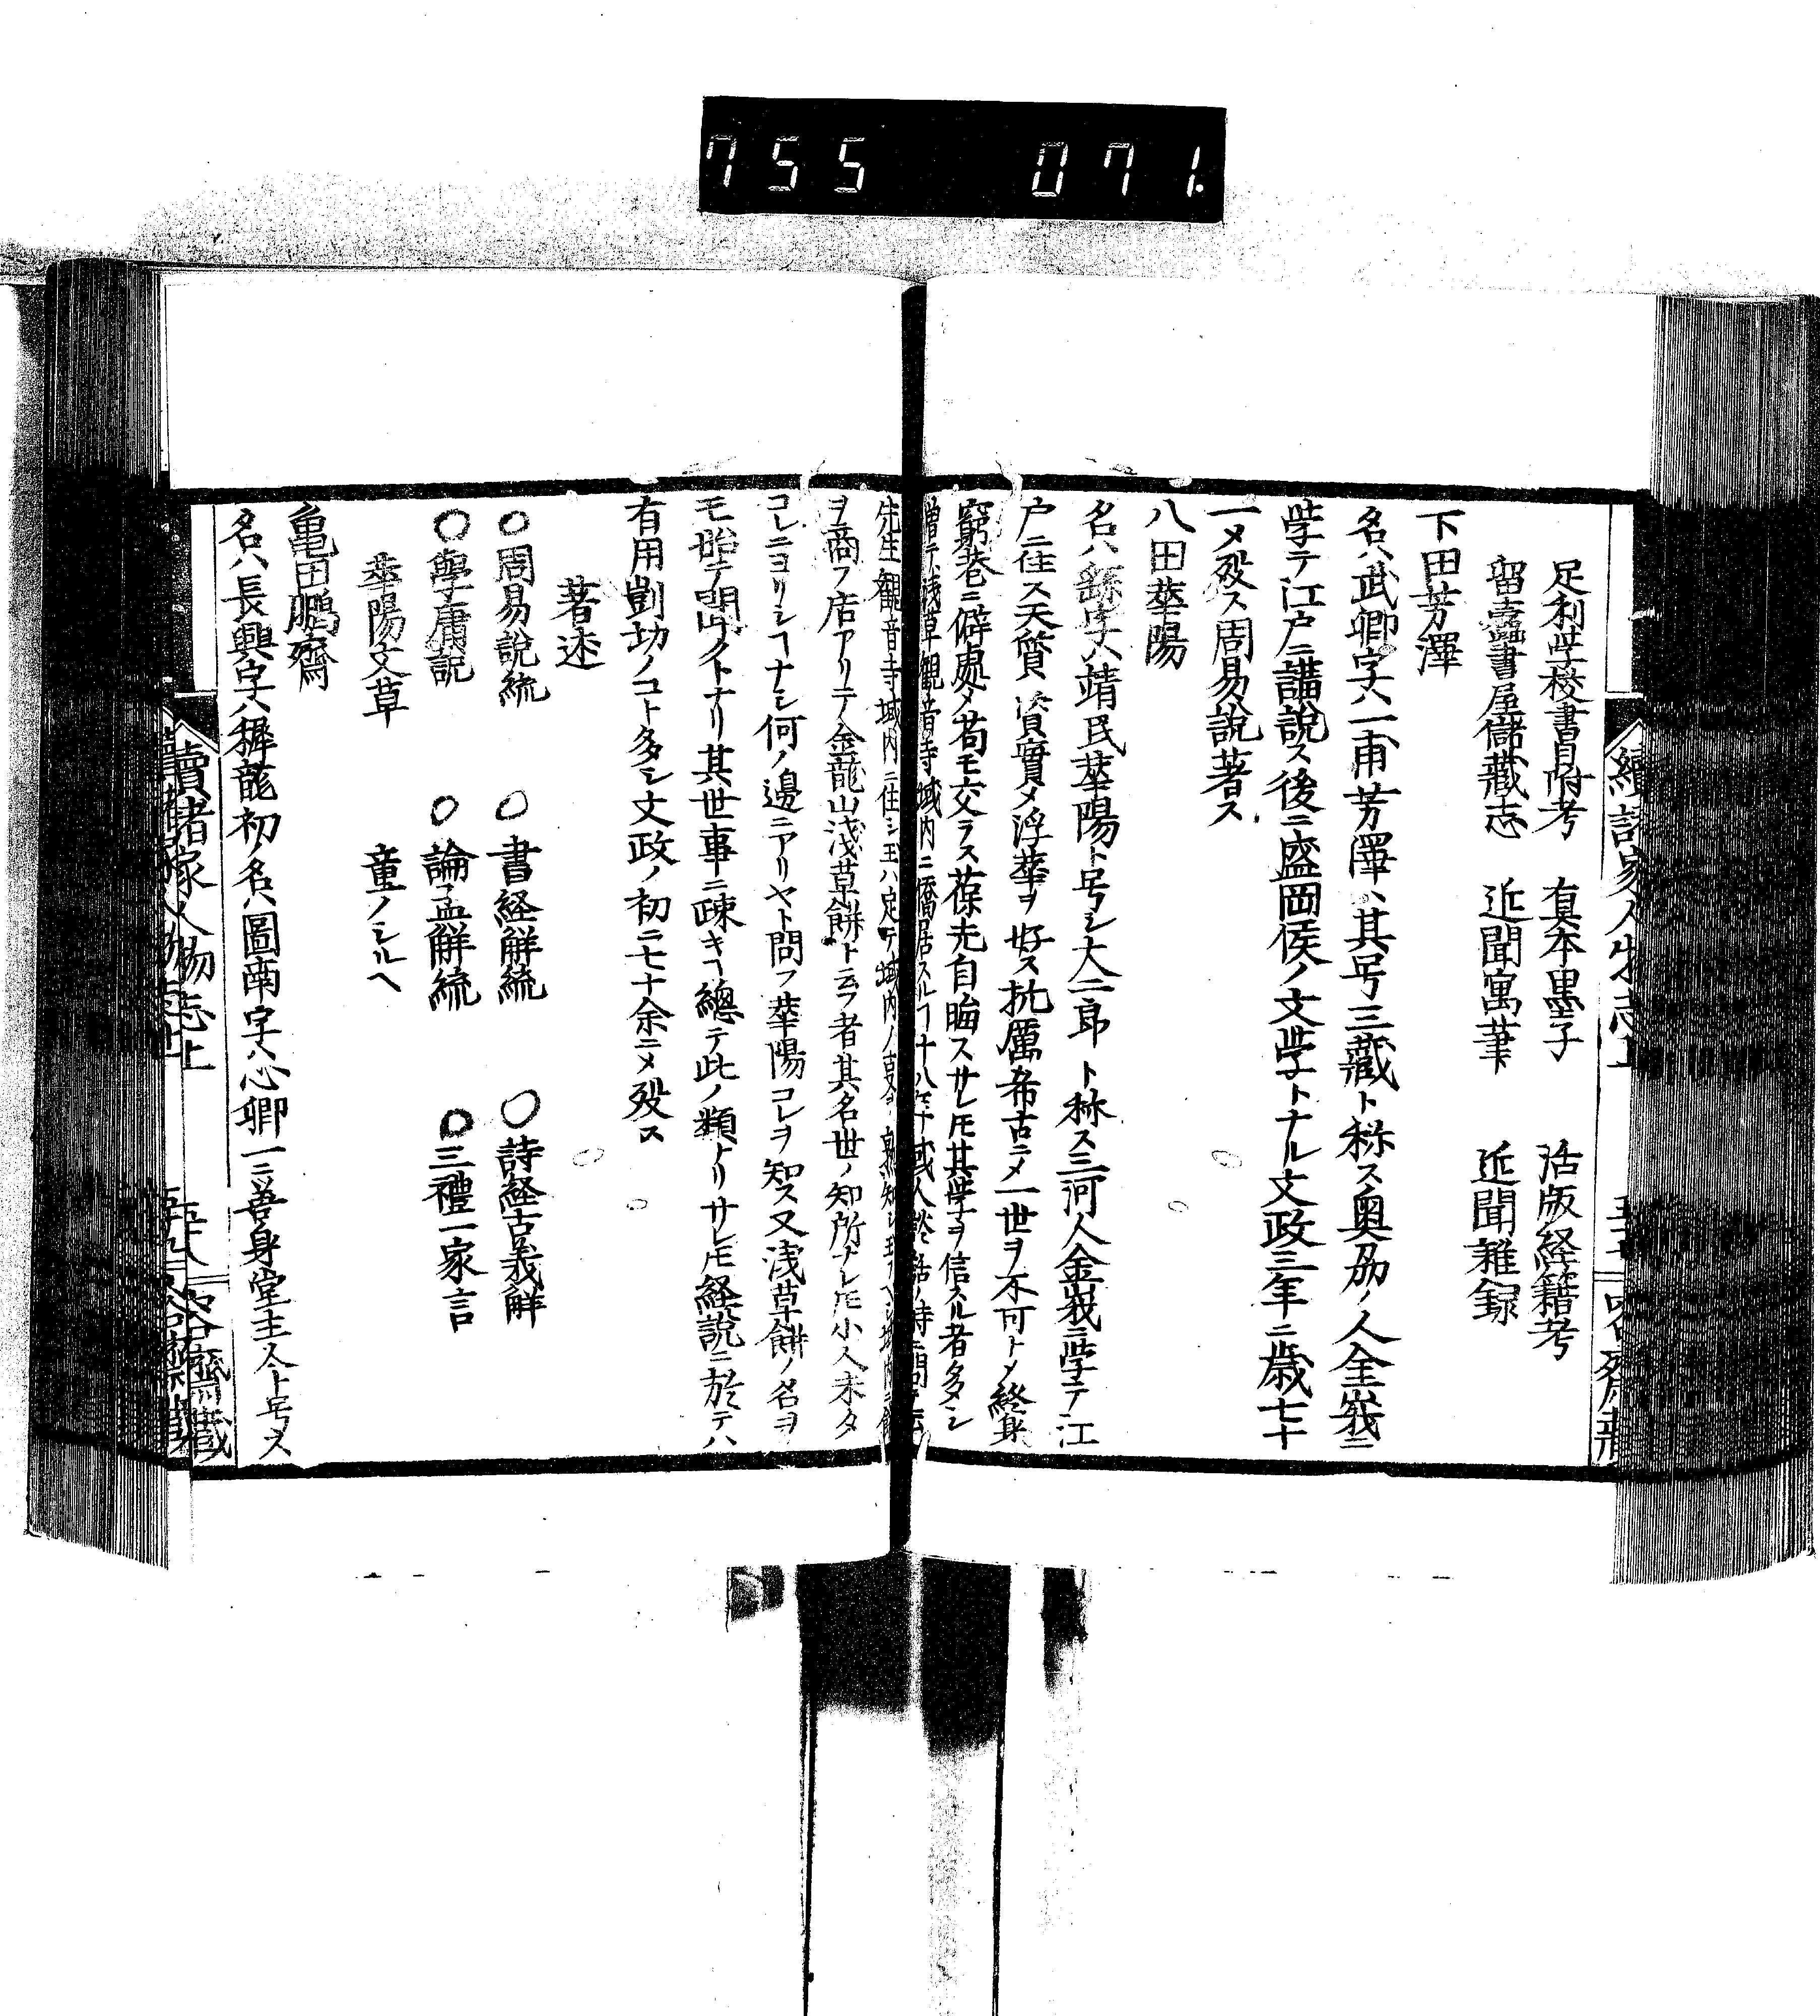 755 071.
足利学校書目附考 真本墨子 活版経籍考
留蠧書屋儲藏志 近聞寓筆 近聞雜録
下田芳澤
名ハ武卿字ハ一甫芳澤ハ其号三藏ト称ス奥刕ノ人金峩ニ
学テ江戸ニ講説ス後ニ盛岡侯ノ文学トナル文政三年ニ歳七十
一メ歿ス周易説著ス
八田華陽
名ハ繇字ハ靖民華陽ト号シ大二郎ト称ス三河人金峩ニ学テ江
戸ニ住ス天質 資實メ浮華ヲ好ス抗厲希古ニメ一世ヲ不可トメ終身
窮巷ニ僻處メ苟モ交ラス葆光自晦スサレ𪜈其学ヲ信スル者多シ
曽テ浅草観音寺域内ニ僑居スルヿ十八年或人談話ノ時ニ問テ云
先生観音寺域内ニ住シ玉ハ定テ域内ノ事ヲ熟知シ玉フヘシ域内ニ餅
ヲ商フ店アリテ金龍山浅草餅ト云フ者其名世ノ知所ナレ𪜈小人未タ
コレニヨリシヿナシ何ノ邊ニアリヤト問フ華陽コレヲ知ス又浅草餅ノ名ヲ
モ始テ聞クトナリ其世事ニ疎キヿ總テ此ノ類ナリサレ𪜈経説ニ於テハ
有用剴切ノコト多シ文政ノ初ニ七十余ニメ歿ス
著述
○周易説統 ○書経解統 ○詩経古義解
○學庸説 ○論孟解統 ○三禮一家言
華陽文草 童ノシルヘ
亀田鵬齋
名ハ長興字ハ穉龍初ノ名ハ圖南字ハ心卿一ニ善身堂主人ト号ス
續諸家人物志上